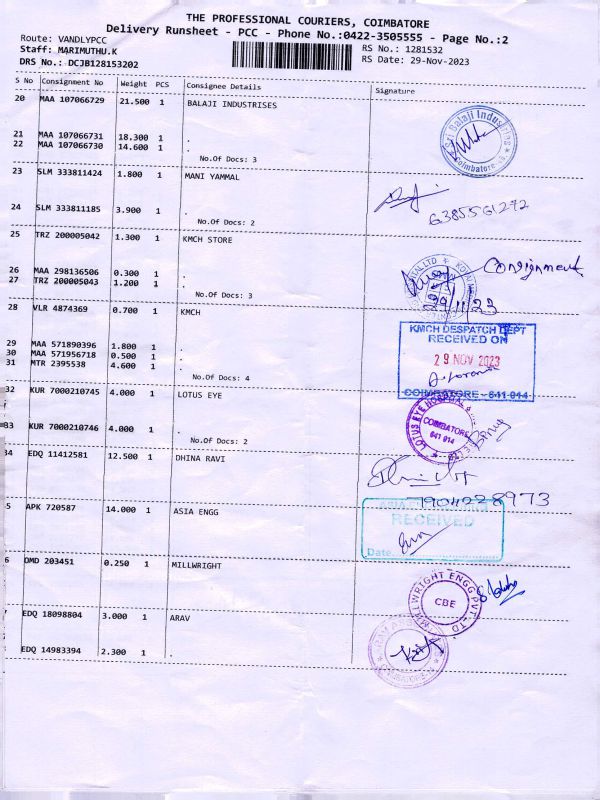 THE PROFESSIONAL COURIERS, COIMBATORE
Delivery Runsheet - PCC - Phone No.:0422-3505555 - Page No.:2
Route: VANDLYPCC
RS No.: 1281532
Staff: MARIMUTHU.K
RS Date: 29-Nov-2023
DRS No.: DCJB128153202
S No Consignment No Weight PCS Consignee Details Signature
20 MAA 107066729 21.500 1 BALAJI INDUSTRISES
Sri Balaji Industries
Coimbatore
21 MAA 107066731 18.300 1 .
22 MAA 107066730 14.600 1 .
No.Of Docs: 3
23 SLM 333811424 1.800 1 MANI YAMMAL
24 SLM 333811185 3.900 1 .
6385561272
No.Of Docs: 2
25 TRZ 200005042 1.300 1 KMCH STORE
Consignment
26 MAA 298136506 0.300 1 .
27 TRZ 200005043 1.200 1 .
No.Of Docs: 3
29/11/23
28 VLR 4874369 0.700 1 KMCH
KMCH DESPATCH DEPT
RECEIVED ON
29 NOV 2023
COIMBATORE - 641 014
29 MAA 571890396 1.800 1 .
30 MAA 571956718 0.500 1 .
31 MTR 2395538 4.600 1 .
No.Of Docs: 4
32 KUR 7000210745 4.000 1 LOTUS EYE
LOTUS EYE HOSPITAL
COIMBATORE
641 014
33 KUR 7000210746 4.000 1 .
No.Of Docs: 2
34 EDQ 11412581 12.500 1 DHINA RAVI
79011228973
5 APK 720587 14.000 1 ASIA ENGG
RECEIVED
Date
6 OMD 203451 0.250 1 MILLWRIGHT
MILLWRIGHT ENGG PVT. LTD
CBE
7 EDQ 18098804 3.000 1 ARAV
EDQ 14983394 2.300 1 .